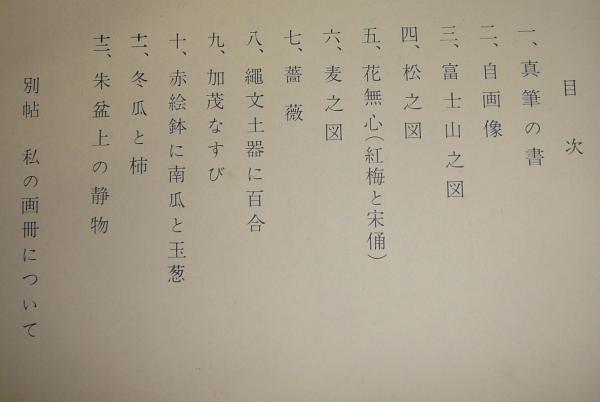 目次
一、真筆の書
二、自画像
三、富士山之図
四、松之図
五、花無心(紅梅と宋俑)
六、麦之図
七、薔薇
八、縄文土器に百合
九、加茂なすび
十、赤絵鉢に南瓜と玉葱
十一、冬瓜と柿
十二、朱盆上の静物
別帖 私の画冊について